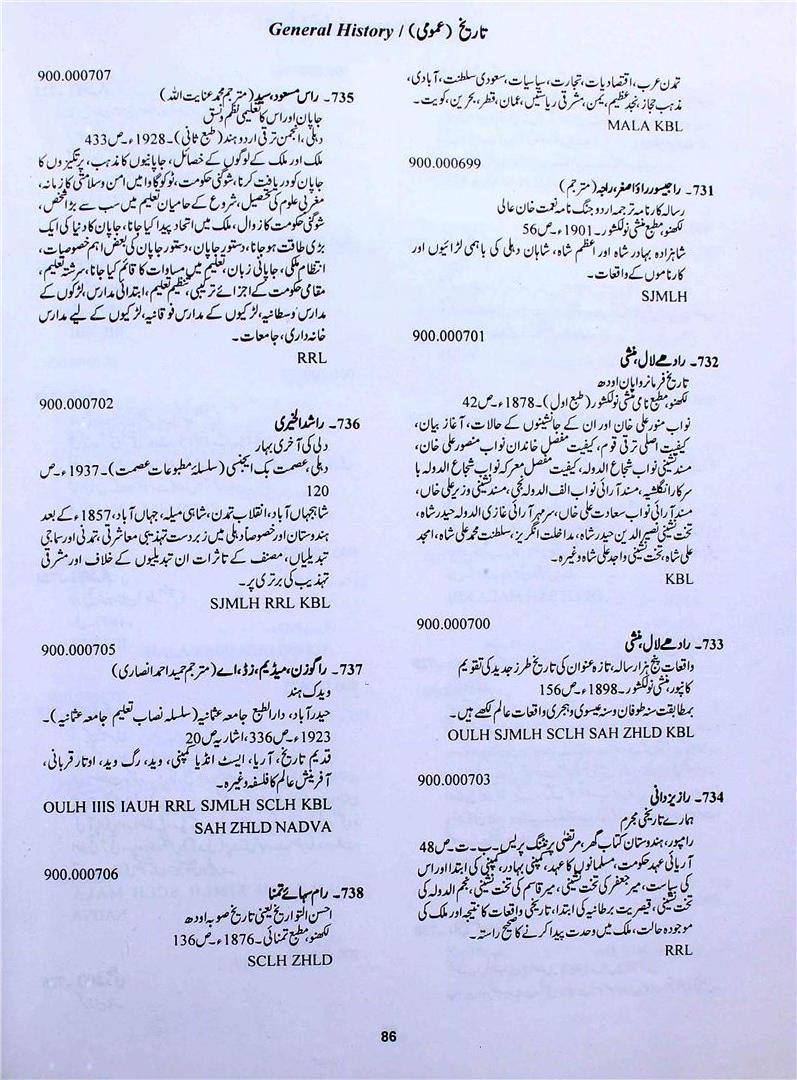 تاریخ (عمومی) / General History
تمدن عرب، اقتصادیات، تجارت، سیاسیات، سعودی سلطنت، آبادی،
مذہب حجاز، نجد عظیم، یمن، مشرقی ریاستیں، عمان، قطر، بحرین، کویت۔
MALA KBL
900.000699
731۔ راجیسور راؤ اصغر، راجہ (مترجم)
رسالہ کارنامہ ترجمہ اردو جنگ نامہ نعمت خان عالی
لکھنو، مطبع منشی نولکشور۔ 1901ء۔ ص56
شاہزادہ بہادر شاہ اور اعظم شاہ، شاہان دہلی کی باہمی لڑائیوں اور
کارناموں کے واقعات۔
SJMLH
900.000701
732۔ رادھے لال، منشی
تاریخ فرمانروایان اودھ
لکھنو، مطبع نامی منشی نولکشور (طبع اول)۔ 1878ء۔ ص42
نواب منور علی خان اور ان کے جانشینوں کے حالات، آغاز بیان،
کیفیت اصلی ترقی قوم، کیفیت مفصل خاندان نواب منصور علی خان،
مسند نشینی نواب شجاع الدولہ، کیفیت مفصل معرکہ نواب شجاع الدولہ با
سرکار انگلشیہ، مسند آرائی نواب الف الدولہ یحیی، مسند نشینی وزیر علی خاں،
مسند آرائی نواب سعادت علی خاں، سریر آرائی غازی الدولہ حیدر شاہ،
تخت نشینی نصیر الدین حیدر شاہ، مداخلت انگریز، سلطنت محمد علی شاہ، امجد
علی شاہ، تخت نشینی واجد علی شاہ وغیرہ۔
KBL
900.000700
733۔ رادھے لال، منشی
واقعات پنج ہزار سالہ، تازہ عنوان کی تاریخ طرز جدید کی تقویم
کانپور، منشی نولکشور۔ 1898ء۔ ص156
بمطابقت سنہ طوفان و سنہ عیسوی و ہجری واقعات عالم لکھے ہیں۔
OULH SJMLH SCLH SAH ZHLD KBL
900.000703
734۔ راز یزدانی
ہمارے تاریخی مجرم
رامپور، ہندوستان کتاب گھر، مرتضی پرنٹنگ پریس۔ ب۔ت۔ ص48
آریائی عہد حکومت، مسلمانوں کا عہد، کمپنی بہادر، کمپنی کی ابتدا اور اس
کی سیاست، میر جعفر کی تخت نشینی، میر قاسم کی تخت نشینی، نجم الدولہ کی
تخت نشینی، قیصریت برطانیہ کی ابتدا، تاریخی واقعات کا نتیجہ اور ملک کی
موجودہ حالت، ملک میں وحدت پیدا کرنے کا صحیح راستہ۔
RRL
900.000707
735۔ راس مسعود، سید (مترجم محمد عنایت اللہ)
جاپان اور اس کا تعلیمی نظم و نسق
دہلی، انجمن ترقی اردو ہند (طبع ثانی)۔ 1928ء۔ ص433
ملک اور ملک کے لوگوں کے خصائل، جاپانیوں کا مذہب، پرتگیزوں کا
جاپان کو دریافت کرنا، شوگنی حکومت، ٹوکوگاوا میں امن و سلامتی کا زمانہ،
مغربی علوم کی تحصیل، شروع کے حامیان تعلیم میں سب سے بڑا شخص،
شوگنی حکومت کا زوال، ملک میں اتحاد پیدا کیا جانا، جاپان کا دنیا کی ایک
بڑی طاقت ہو جانا، دستور جاپان، دستور جاپان کی بعض اہم خصوصیات،
انتظام ملکی، جاپانی زبان، تعلیم میں مساوات کا قائم کیا جانا، سررشتہ تعلیم،
مقامی حکومت کے اجزائے ترکیبی، تنظیم تعلیم، ابتدائی مدارس، لڑکوں کے
مدارس وسطانیہ، لڑکیوں کے مدارس فوقانیہ، لڑکیوں کے لیے مدارس
خانہ داری، جامعات۔
RRL
900.000702
736۔ راشد الخیری
دلی کی آخری بہار
دہلی، عصمت بک ایجنسی (سلسلۂ مطبوعات عصمت)۔ 1937ء۔ ص
120
شاہجہاں آباد، انقلاب تمدن، شاہی میلہ، جہاں آباد، 1857ء کے بعد
ہندوستان اور خصوصاً دہلی میں زبردست تہذیبی معاشرتی، تمدنی اور سماجی
تبدیلیاں، مصنف کے تاثرات ان تبدیلیوں کے خلاف اور مشرقی
تہذیب کی برتری پر۔
SJMLH RRL KBL
900.000705
737۔ راگوزن، میڈیم، زڈ، اے (مترجم حمید احمد انصاری)
ویدک ہند
حیدرآباد، دارالطبع جامعہ عثمانیہ (سلسلہ نصاب تعلیم جامعہ عثمانیہ)۔
1923ء۔ ص336، اشاریہ ص20
قدیم تاریخ، آریا، ایسٹ انڈیا کمپنی، وید، رگ وید، اوتار قربانی،
آفرینش عالم کا فلسفہ وغیرہ۔
OULH IIIS IAUH RRL SJMLH SCLH KBL
SAH ZHLD NADVA
900.000706
738۔ رام سہائے تمنا
احسن التواریخ یعنی تاریخ صوبہ اودھ
لکھنو، مطبع تمنائی۔ 1876ء۔ ص136
SCLH ZHLD
86